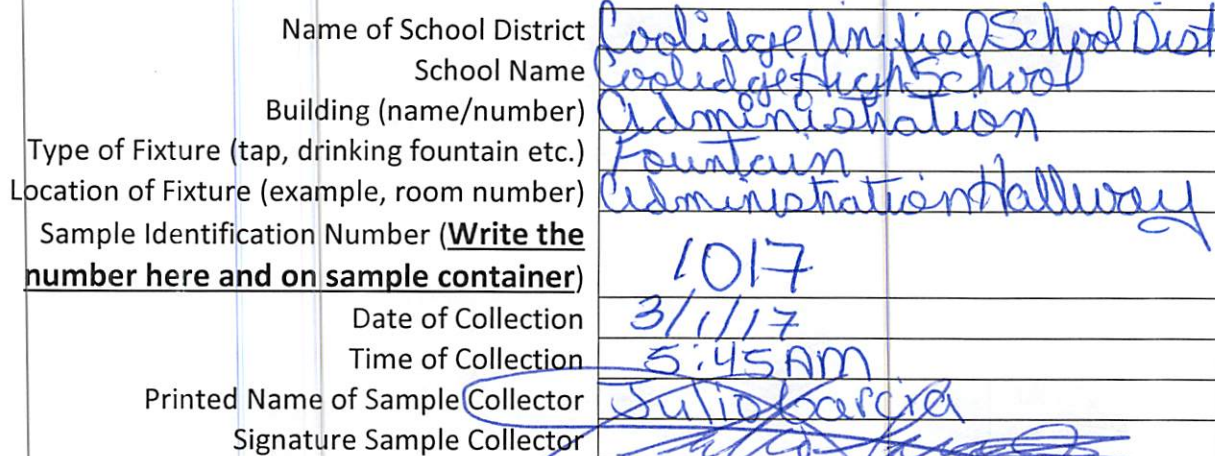 Name of School District Coolidge Unified School Dist
School Name Coolidge High School
Building (name/number) Administration
Type of Fixture (tap, drinking fountain etc.) Fountain
Location of Fixture (example, room number) Administration Hallway
Sample Identification Number (Write the
number here and on sample container) 1017
Date of Collection 3/1/17
Time of Collection 5:45 AM
Printed Name of Sample Collector Julio Garcia
Signature Sample Collector